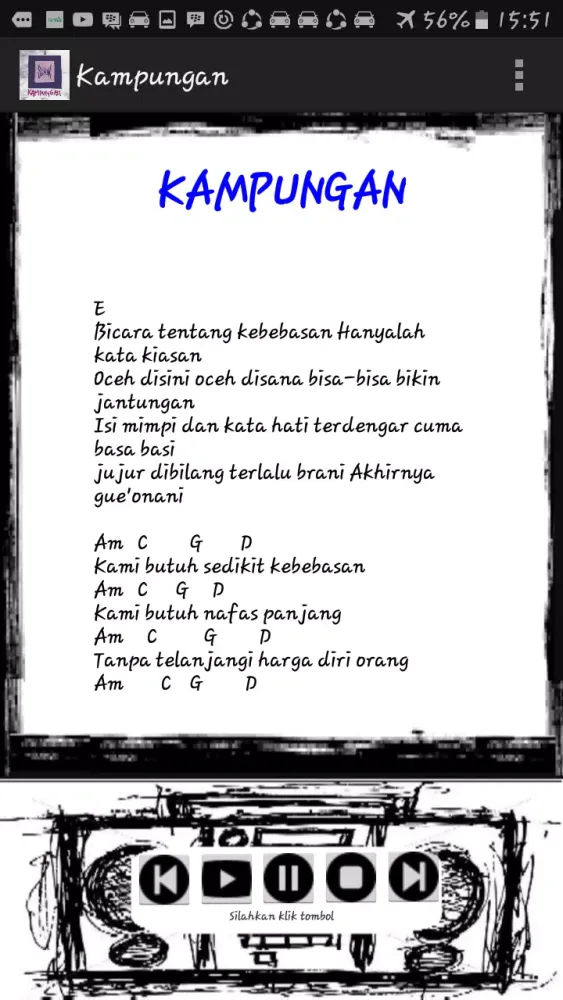 56% 15:51
SLANK
KAMPUNGAN
Kampungan
KAMPUNGAN
E
Bicara tentang kebebasan Hanyalah
kata kiasan
Oceh disini oceh disana bisa-bisa bikin
jantungan
Isi mimpi dan kata hati terdengar cuma
basa basi
jujur dibilang terlalu brani Akhirnya
gue'onani
Am C G D
Kami butuh sedikit kebebasan
Am C G D
Kami butuh nafas panjang
Am C G D
Tanpa telanjangi harga diri orang
Am C G D
Silahkan klik tombol